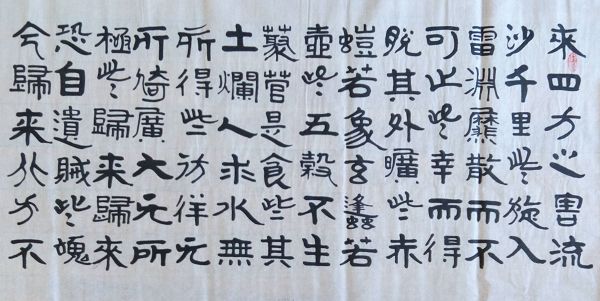 來西方之害流
沙千里些旋入
雷淵爢散而不
可止些幸而得
脫其外曠些赤
螘若象玄蠭若
壺些五穀不生
藂菅是食些其
土爛人求水無
所得些彷徉无
所倚廣大无所
極些歸來歸來
恐自遺賊些魂
兮歸來北方不